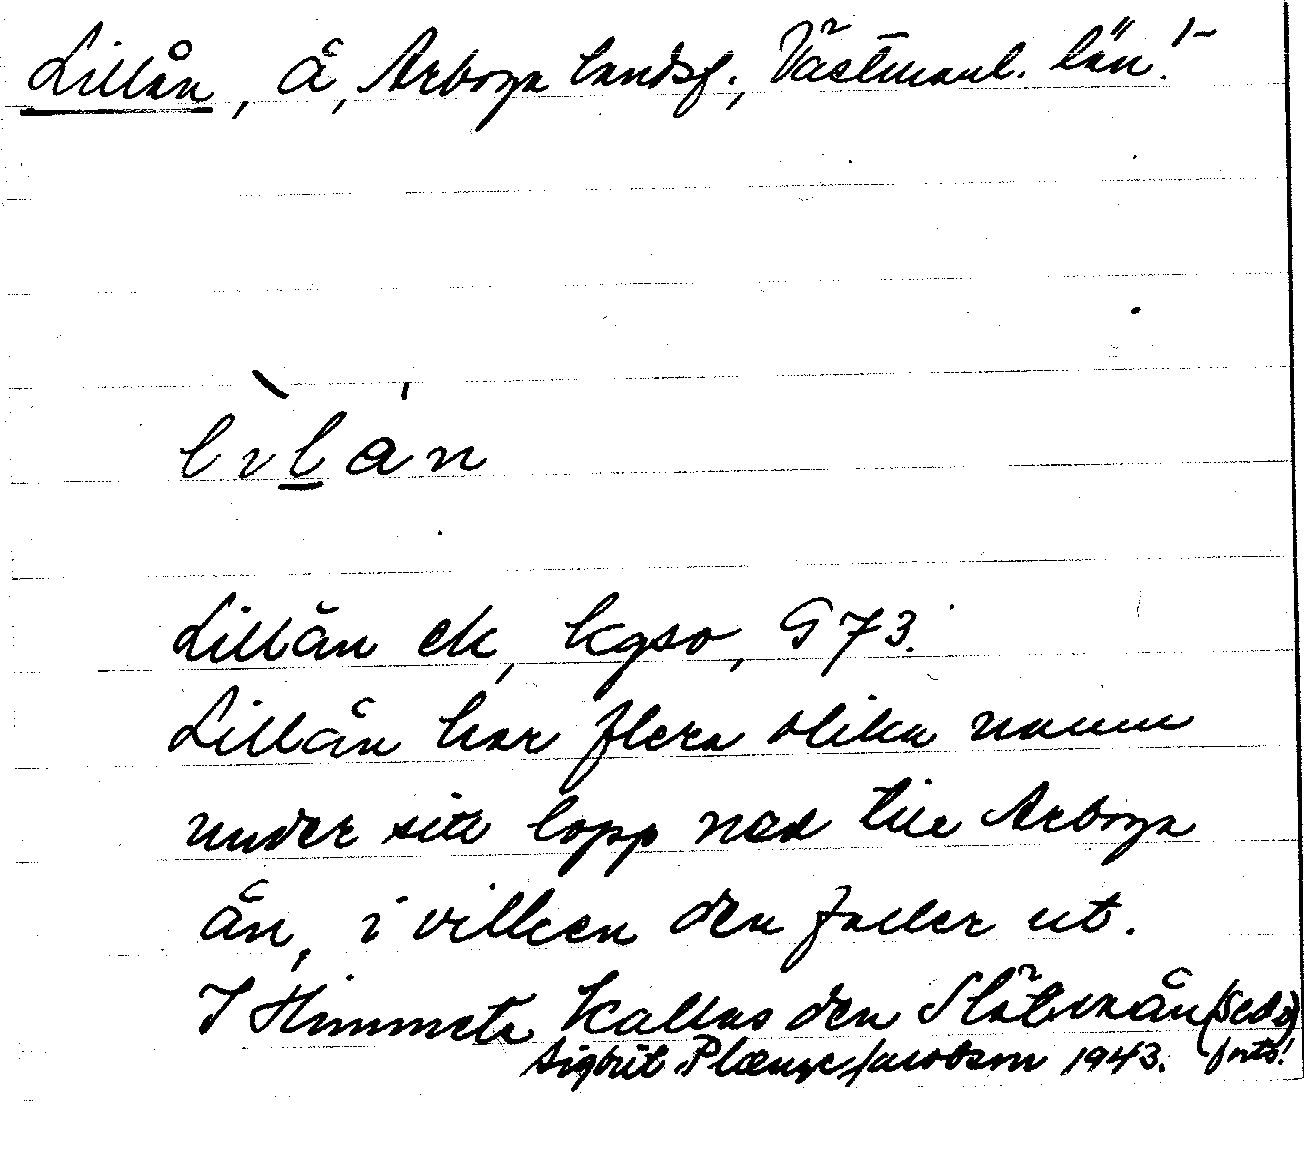 Lillån, å, Arboga landsf., Västmanl. län. 1–
lılån
Lillån ek, kgso, G 73.
Lillån har flera olika namn
under sitt lopp ned till Arboga
ån, i vilken den faller ut.
I Himmeta kallas den (se d.o)
Sigbrit Plænge Jacobson 1943. forts!